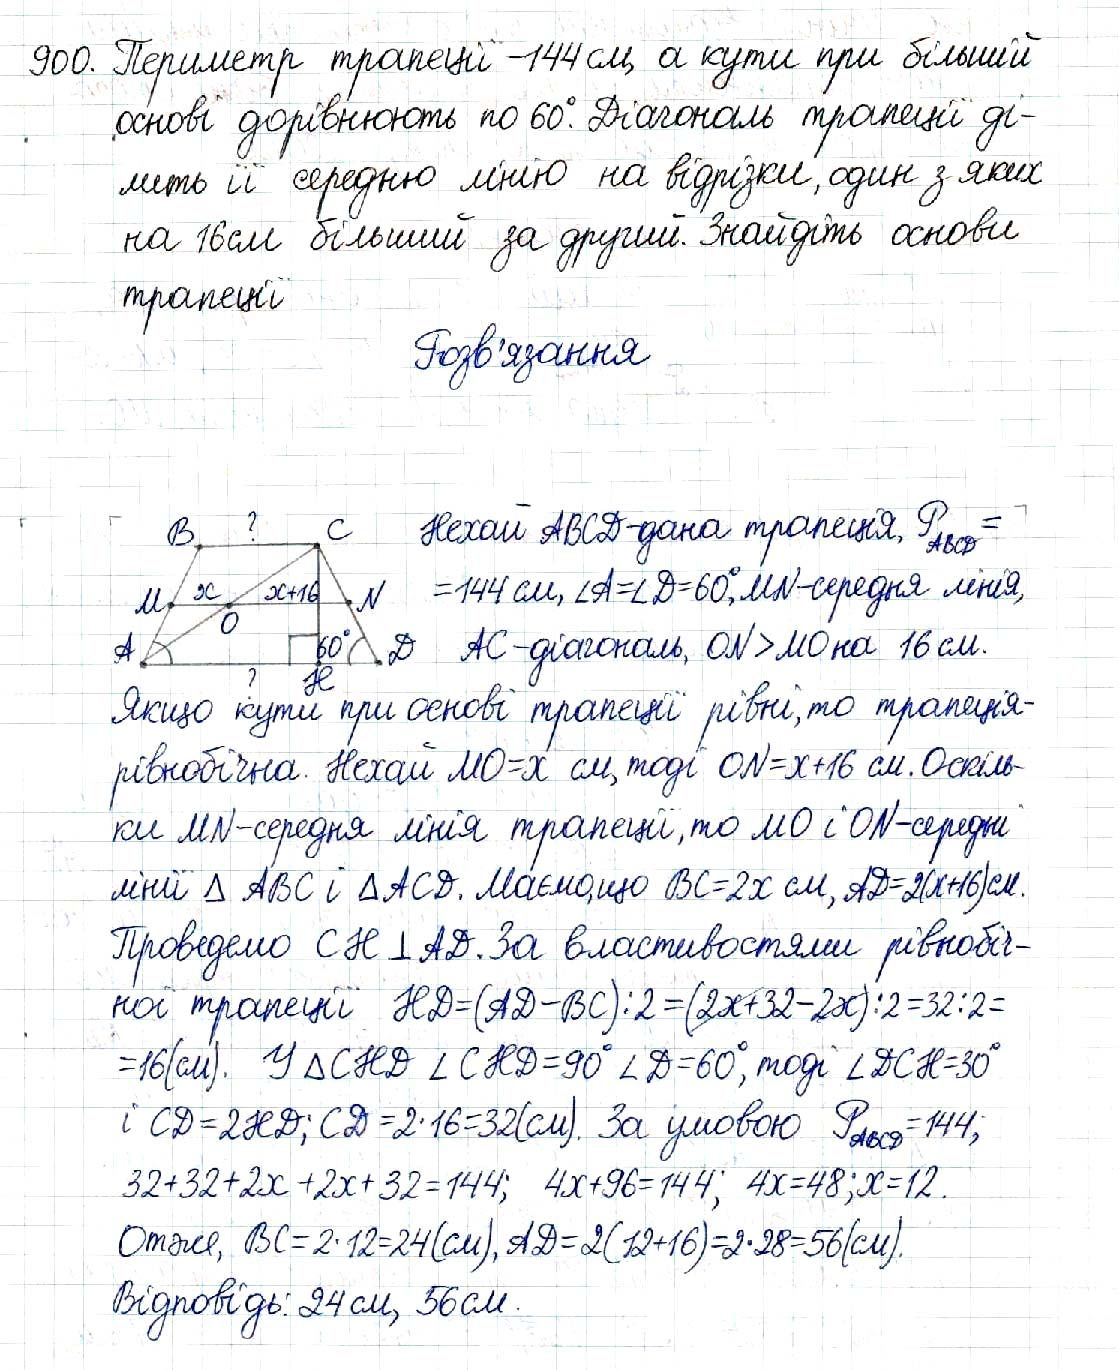 900. Периметр трапеції -144 см, а кути при більший
основі дорівнюють по 60°. Діагональ трапеції ді-
лить її середню лінію на відрізки, один з яких
на 16 см більший за другий. Знайдіть основи
трапеції
Розв'язання
B ? C
M x x+16 N
O
A 60° D
? H
Нехай ABCD-дана трапеція, P_ABCD =
=144 см, ∠A=∠D=60°, MN-середня лінія,
AC-діагональ, ON>MO на 16 см.
Якщо кути при основі трапеції рівні, то трапеція-
рівнобічна. Нехай MO=x см, тоді ON=x+16 см. Оскіль-
ки MN-середня лінія трапеції, то MO і ON-середні
лінії Δ ABC і ΔACD. Маємо, що BC=2x см, AD=2(x+16)см.
Проведемо CH⊥AD. За властивостями рівнобіч-
ної трапеції HD=(AD-BC):2=(2x+32-2x):2=32:2=
=16(см). У ΔCHD ∠CHD=90° ∠D=60°, тоді ∠DCH=30°
і CD=2HD; CD=2·16=32(см). За умовою P_ABCD=144;
32+32+2x+2x+32=144; 4x+96=144; 4x=48; x=12.
Отже, BC=2·12=24(см), AD=2(12+16)=2·28=56(см).
Відповідь: 24 см, 56 см.